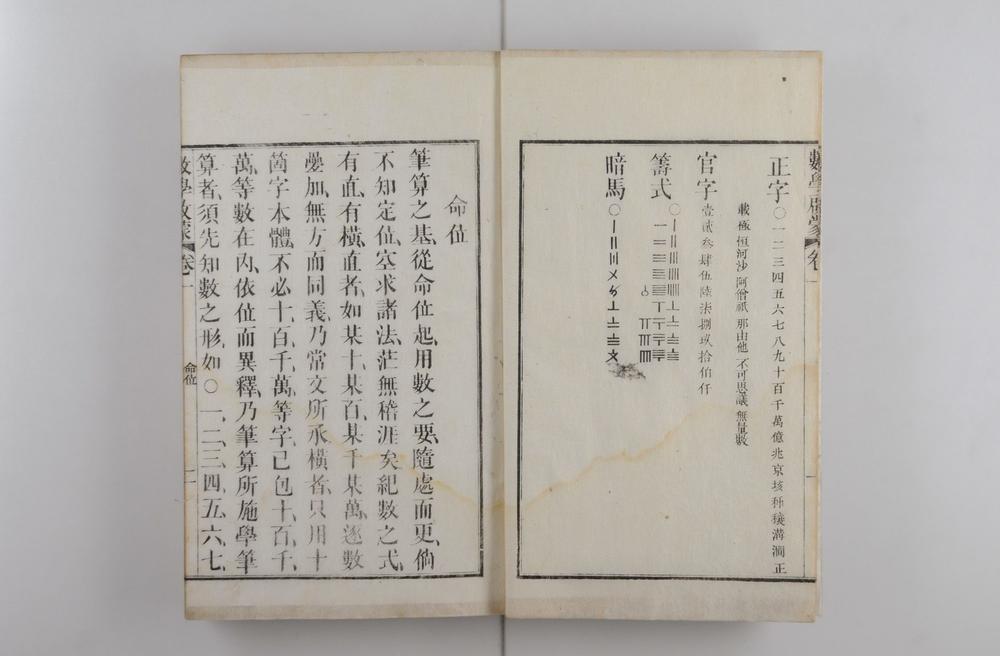 數學啟蒙 卷一
正字 ○一二三四五六七八九十百千萬億兆京垓秭穰溝澗正
載極恒河沙阿僧祇那由他不可思議無量數
官字 壹貳叁肆伍陸柒捌玖拾伯仟
籌式 ○
暗馬 ○〡〢〣〤〥〦〧〨〩
命位
筆算之基、從命位起、用數之要、隨處而更、倘
不知定位、空求諸法、茫無稽涯矣、紀數之式、
有直、有橫、直者、如某十、某百、某千、某萬、逐數
疊加、無方而同義、乃常文所承、橫者、只用十
箇字本體、不必十百千萬等字、已包十、百、千、
萬、等數在內、依位而異釋、乃筆算所施、學筆
算者、須先知數之形、如○一、二、三、四、五、六、七、
數學啟蒙 卷一 命位 二